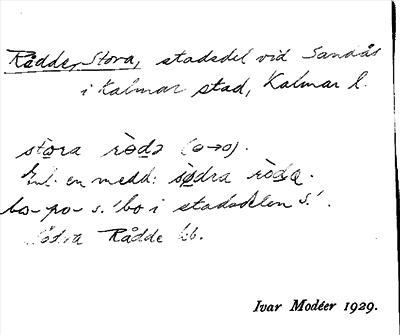 Rådde, Stora, stadsdel vid Sandås
i Kalmar stad, Kalmar l.
stora ròdə (o→o).
Enl. en medd: södra ròdə.
bo po s. 'bo i stadsdelen S.'.
Södra Rådde bb.
Ivar Modéer 1929.